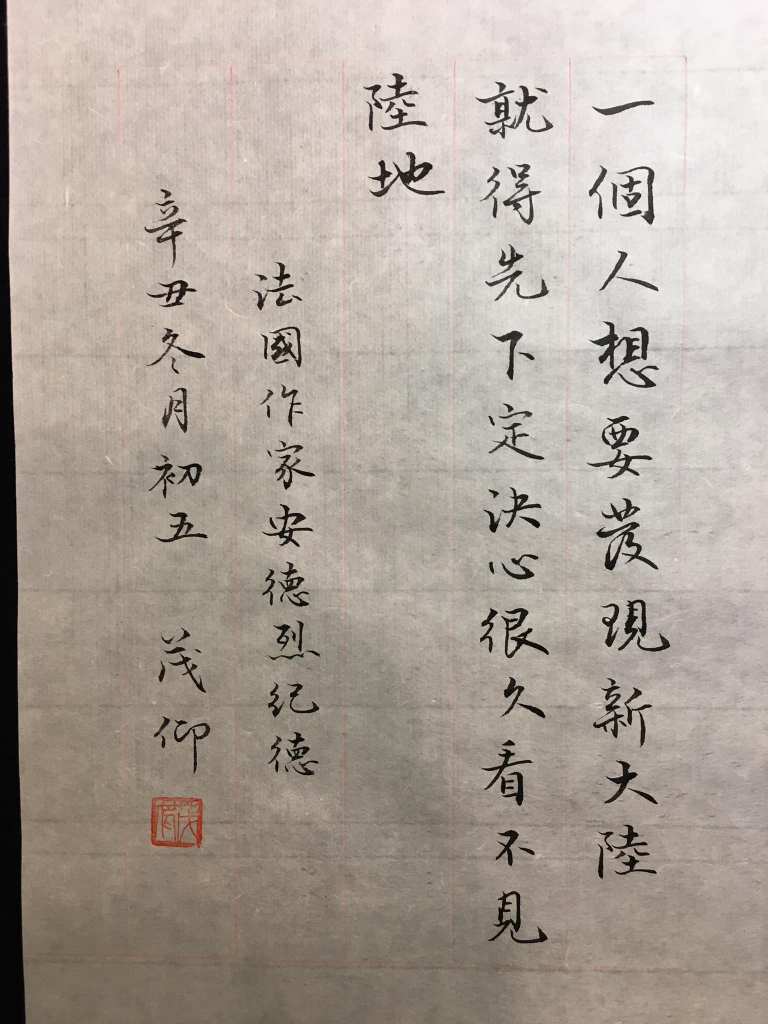 一個人想要發現新大陸
就得先下定決心很久看不見
陸地
法國作家安德烈紀德
辛丑冬月初五 茂仰